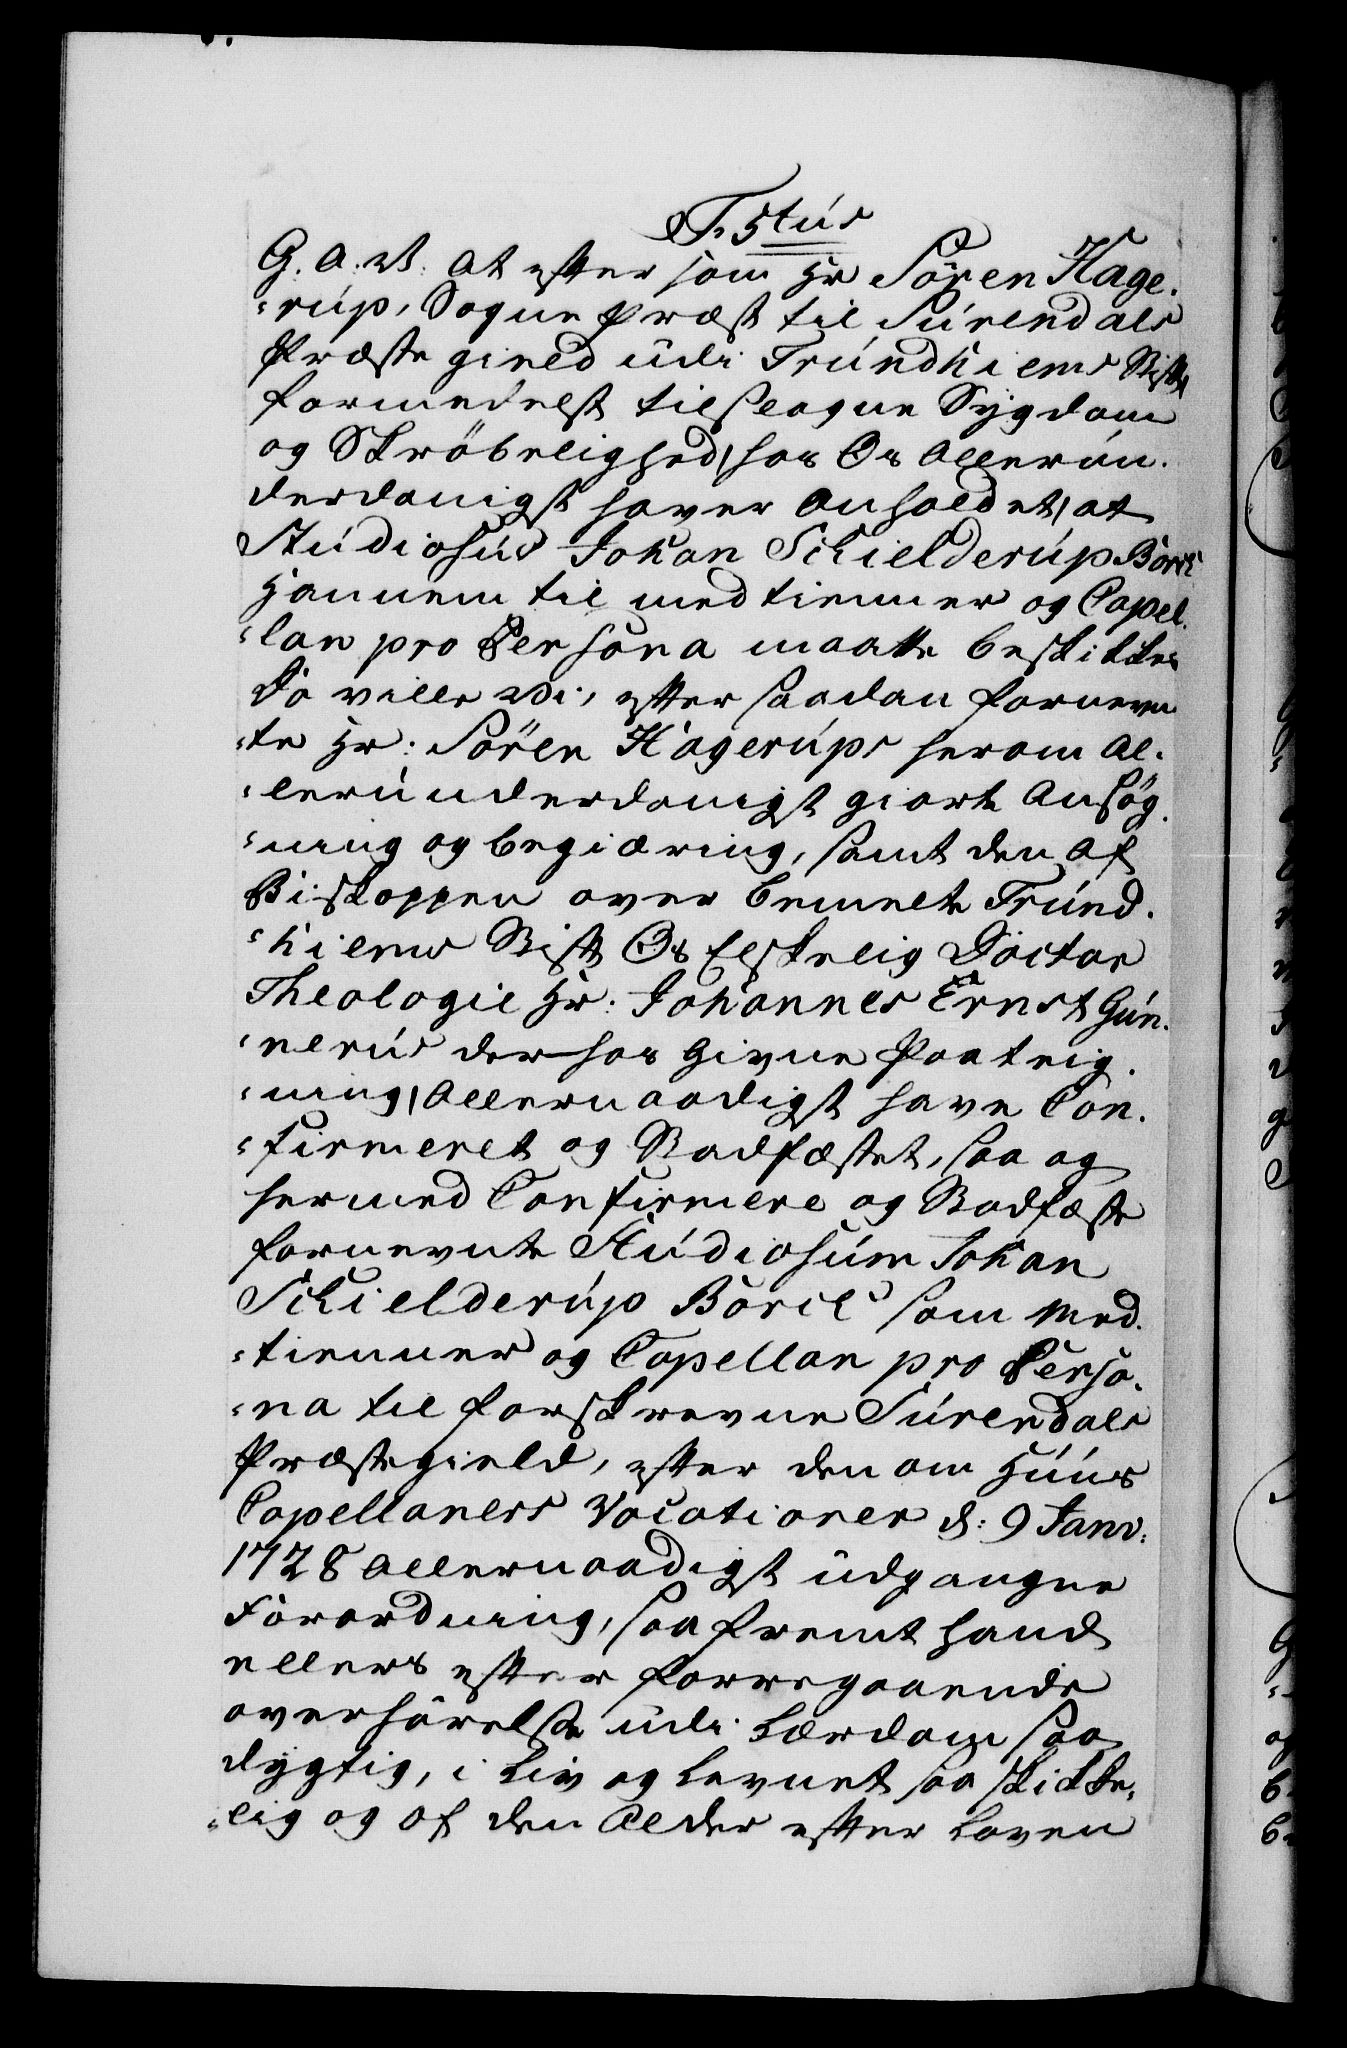 F. 5tús
G. A. V. At efftersom Hr Sören Hage-
-rúp, Sogne Præst til Súrendals
Præstegield údi Trúndhiems Stift
formedelst tilslagne Sygdom
og Skröbelighed, hos Os Allerún-
derdanigst haver Anholdet, at
Stúdiosús Johan Schielderúp Borch
Hannem til medtienner og Capel-
-lan pro Persona maatte beskikkes
Da ville Vi, effter saadan fornevn
-te Hr: Sören Hagerúps herom Al-
-lerúnderdanigst giorte Ansög-
-ning og begiæring, samt den af
Biskoppen over bemelte Trúnd-
-hiems Stift Os Elskelig Doctor
Theologie Hr: Johannes Ernst Gún-
-nerús derhos givne Paateig-
-ning, Allernaadigst have Con-
-firmeret og Stadfæstet, saa og
hermed Confirmere og Stadfæste
fornevnte Stúdiosúm Johan
Schielderúp Borch som Med-
-tienner og Capellan pro Perso-
-na til forskrevne Súrendals
Præstegield, effter den om Húús
Capellaners Vocationer d: 9 Janv:
1728 Allernaadigst údgangne
Forordning, saafremt hand
ellers effter foregaaende
overhörelse údi Lærdom saa
dygtig, i Liv og Levnet saa skikke-
-lig og af den Alder effter Loven